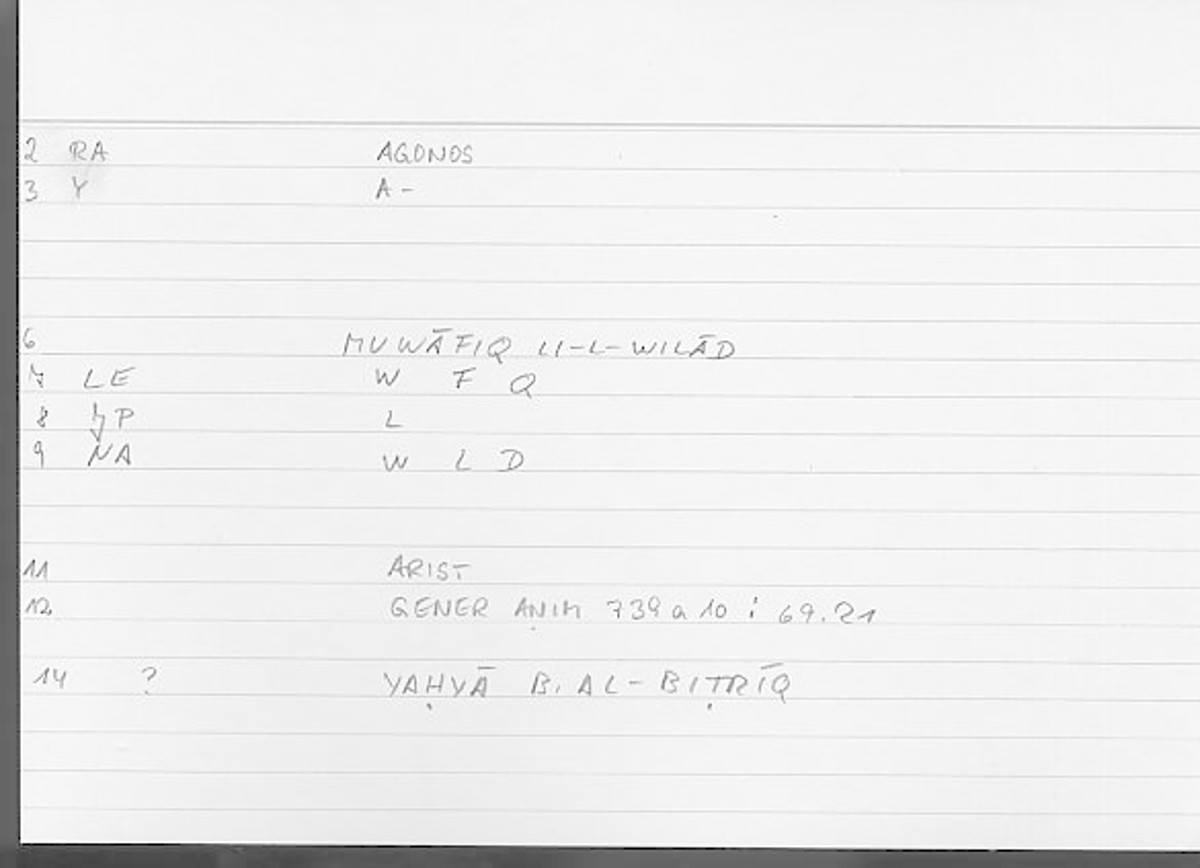 2 RA AGONOS
3 Y A-
6 MUWĀFIQ LI-L-WILĀD
7 LE W F Q
8 P L
9 NA W L D
11 ARIST
12 GENER ANIM 739 a 10 : 69.21
14 ? YAḤYĀ B. AL-BIṬRĪQ